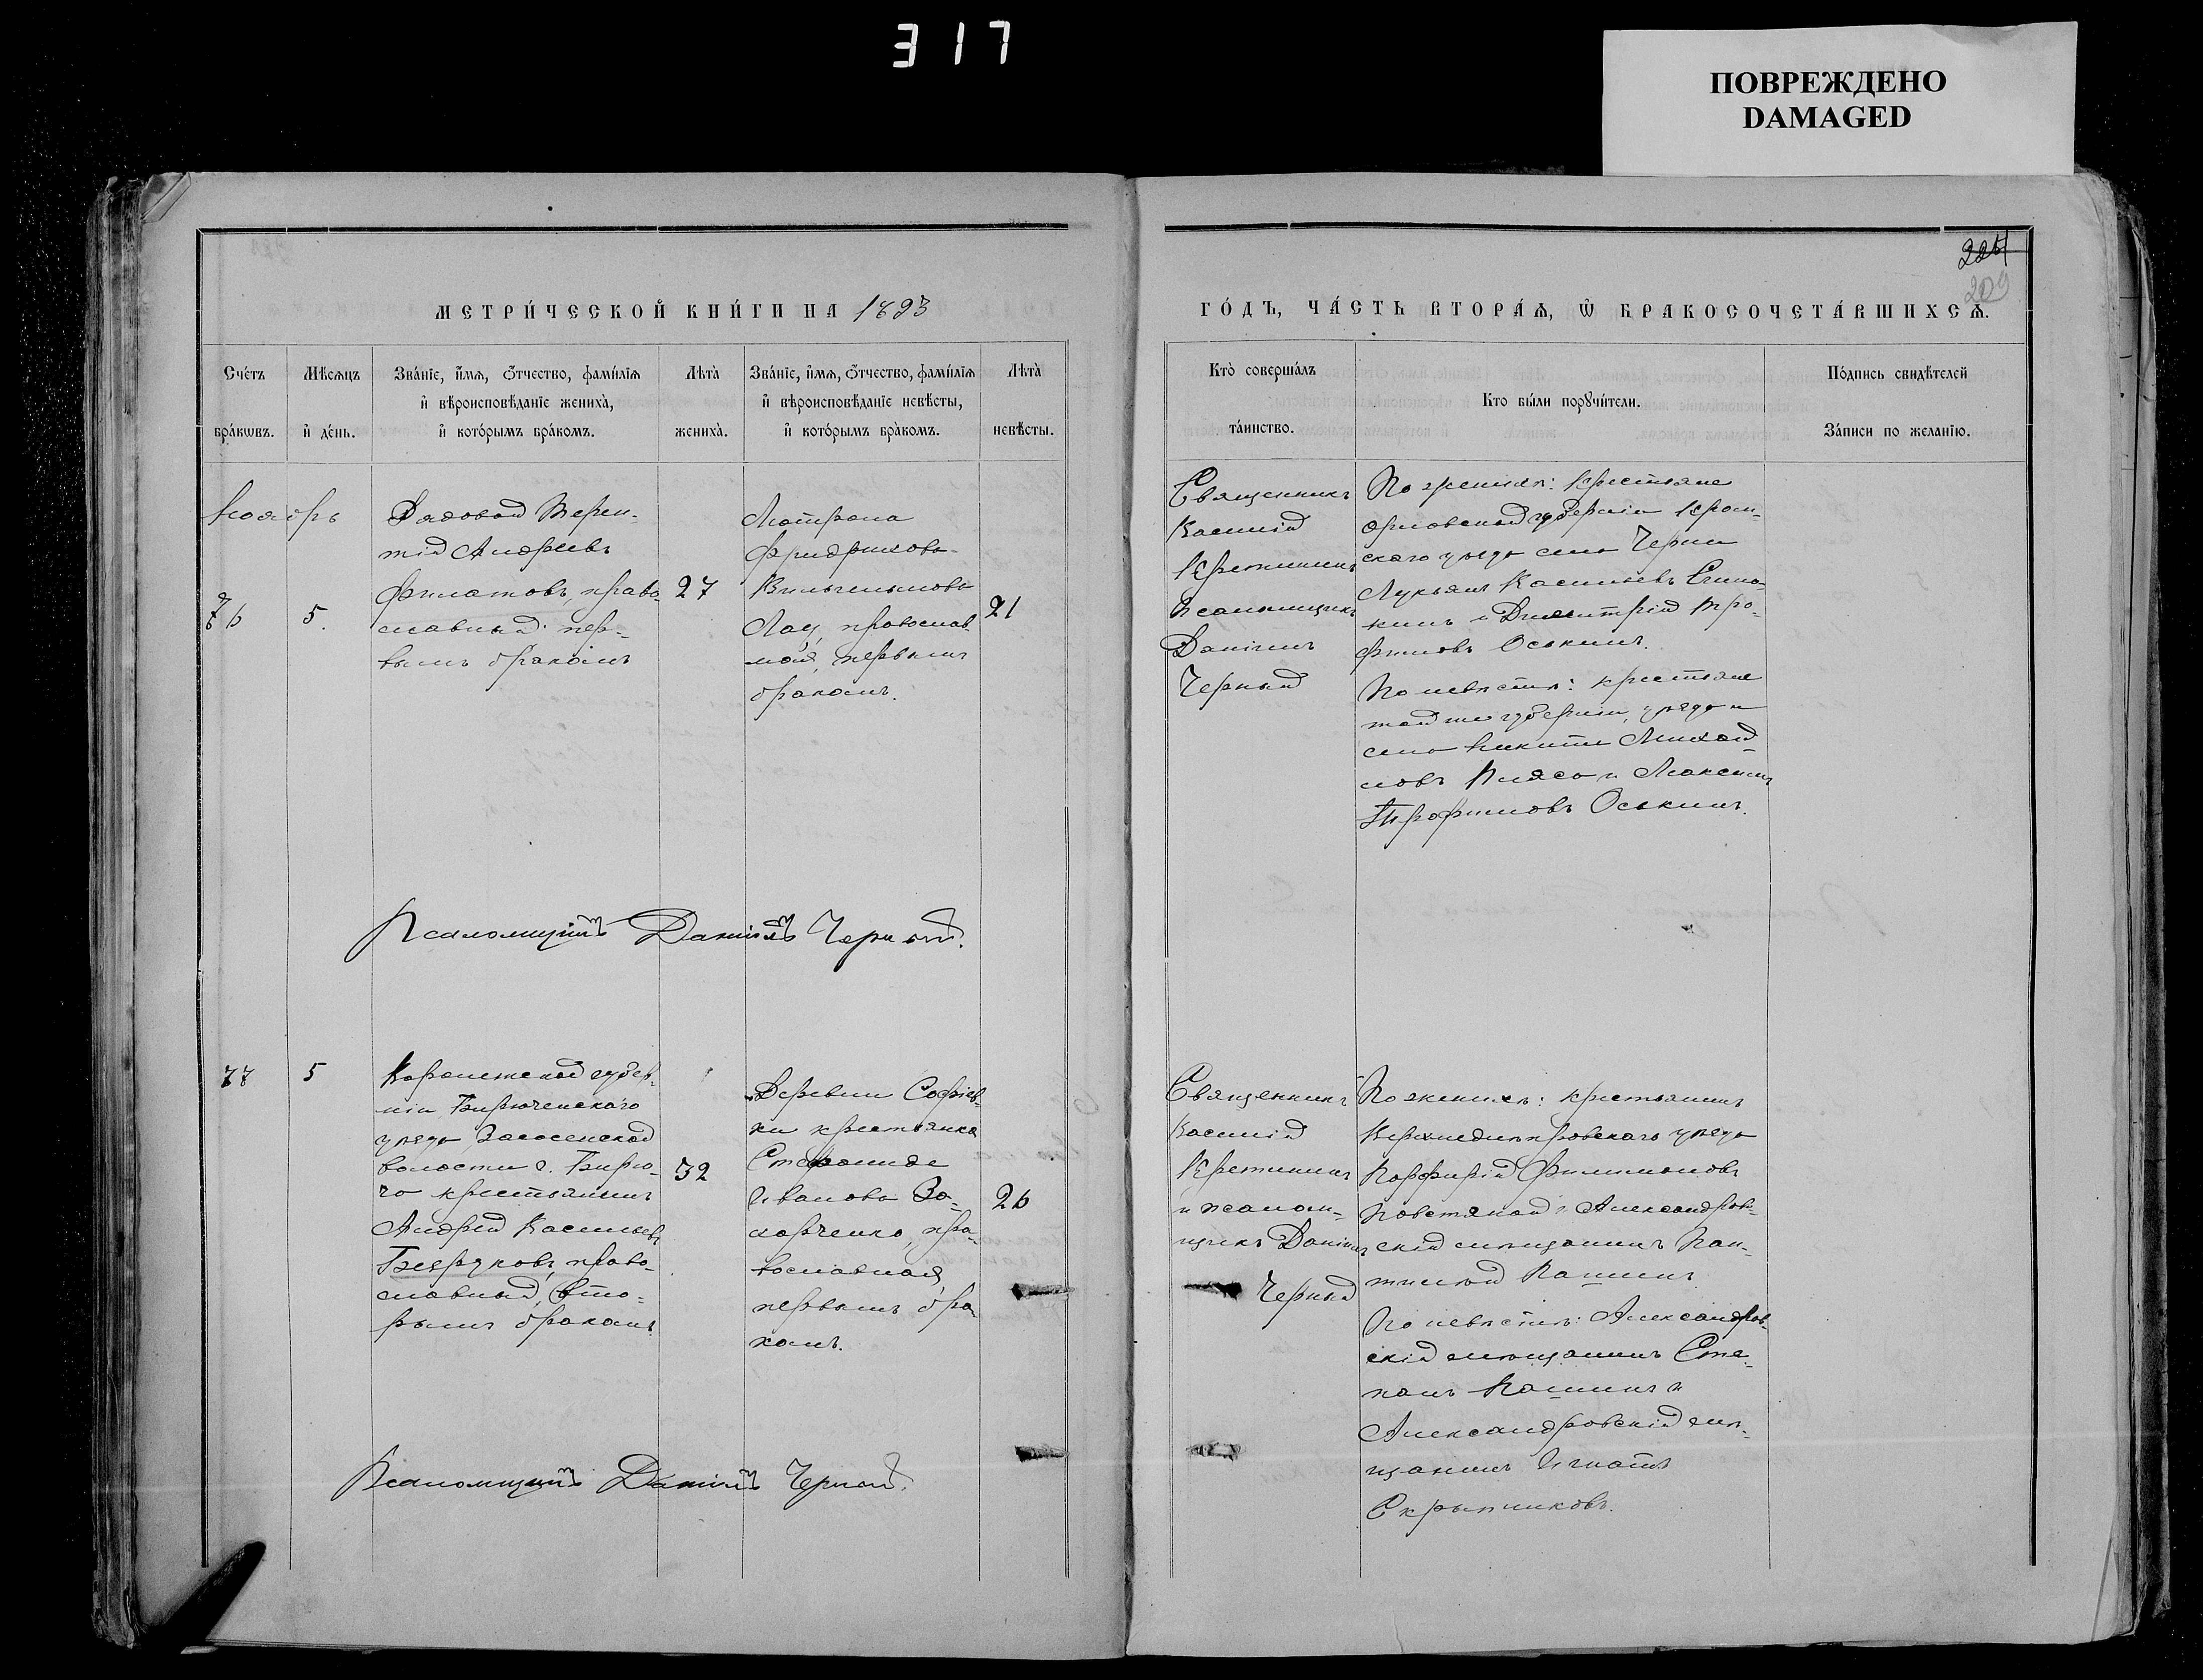 317
ПОВРЕЖДЕНО
DAMAGED
224
209
МЕТРИ́ЧЕСКОЙ КНИ́ГИ НА 1893
ГО́ДЪ, ЧА́СТЬ ВТОРА́Ѧ, Ѡ҆ БРАКОСОЧЕТА́ВШИХСѦ.
Сче́тъ бра́кѡвъ.
Мѣ́сѧцъ и҆ де́нь.
Зва́нїе, и҆́мѧ, ѻ҆́тчество, фами́лїѧ
и҆ вѣроисповѣ́данїе жениха̀,
и҆ кото́рымъ бра́комъ.
Лѣта̀ жениха̀.
Зва́нїе, и҆́мѧ, ѻ҆́тчество, фами́лїѧ
и҆ вѣроисповѣ́данїе невѣ́сты,
и҆ кото́рымъ бра́комъ.
Лѣта̀ невѣ́сты.
Кто̀ соверша́лъ
та́инство.
Кто бы́ли порꙋчи́тели.
По́дпись свидѣ́телей
За́писи по жела́нїю.
Ноябрь
76
5.
Рядовой Терен-
тій Андреевъ
Филатовъ, право-
славный, пер-
вымъ бракомъ
27
Матрона
Фридрихова
Вильгельмова
Лау, православ-
ная, первымъ
бракомъ.
21
Священникъ
Василій
Кретининъ
Псаломщикъ
Даніилъ
Черный
По женихѣ: крестьяне
Орловской губерніи Кром-
скаго уѣзда села Черни
Лукьянъ Васильевъ
и Димитрій Тро-
фимовъ Оськинъ.
По невѣстѣ: крестьяне
той же губерніи, уѣзда и
села Никита Михай-
ловъ и Максимъ
Трофимовъ Оськинъ.
Псаломщикъ Даніилъ Черный.
77
5
Воронежской губер-
ніи Бирюченскаго
уѣзда
волости с. Бирю-
ча крестьянинъ
Андрей Васильевъ
право-
славный, вто-
рымъ бракомъ
32
Деревни Софіев-
ки крестьянка
Степанида
Иванова За-
харченко, пра-
вославная,
первымъ бра-
комъ.
26
Священникъ
Василій
Кретининъ
и псалом-
щикъ Даніилъ
Черный
По женихѣ: крестьянинъ
Верхнеднѣпровскаго уѣзда
Порфирій Филимоновъ
и Александров-
скій мѣщанинъ Пан-
телей Кашинъ
По невѣстѣ: Александров-
скій мѣщанинъ Сте-
панъ Кашинъ и
Александровскій мѣ-
щанинъ Игнатъ
Скрыпниковъ.
Псаломщикъ Даніилъ Черный.